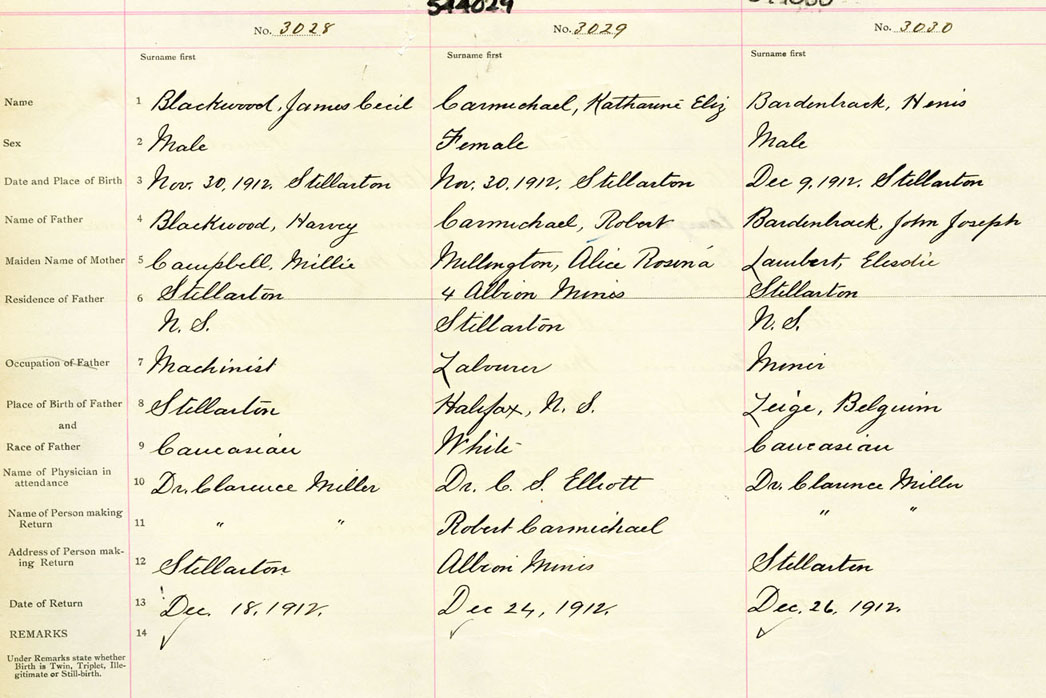 544029
No. 3028 No. 3029 No. 3030
Surname first Surname first Surname first
Name 1 Blackwood, James Cecil Carmichael, Katharine Eliz Bardenback, Henis
Sex 2 Male Female Male
Date and Place of Birth 3 Nov. 30, 1912. Stellarton Nov. 30, 1912. Stellarton Dec 9, 1912. Stellarton
Name of Father 4 Blackwood, Harvey Carmichael, Robert Bardenback, John Joseph
Maiden Name of Mother 5 Campbell, Millie Alice Rosina Lambert,
Residence of Father 6 Stellarton 4 Albion Mines Stellarton
N. S. Stellarton N. S.
Occupation of Father 7 Machinist Labourer Miner
Place of Birth of Father 8 Stellarton Halifax, N. S. Leige, Belguim
and
Race of Father 9 Caucasian White Caucasian
Name of Physician in
attendance 10 Dr. Clarence Miller Dr. C. S. Elliott Dr. Clarence Miller
Name of Person making
Return 11 " " Robert Carmichael " "
Address of Person mak-
ing Return 12 Stellarton Albion Mines Stellarton
Date of Return 13 Dec. 18, 1912. Dec 24, 1912. Dec. 26, 1912.
REMARKS 14
Under Remarks state whether
Birth is Twin, Triplet, Ille-
gitimate or Still-birth.